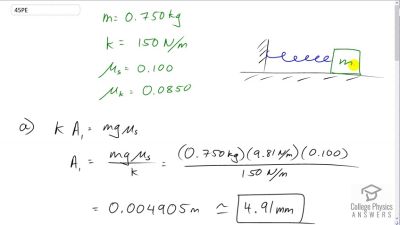 45PE
m = 0.750 kg
k = 150 N/m
μs = 0.100
μk = 0.0850
m
a) k A₁ = mg μs
A₁ = mg μs / k = (0.750 kg)(9.81 N/m)(0.100) / 150 N/m
= 0.004905 m ≃ 4.91 mm
College Physics
ANSWERS